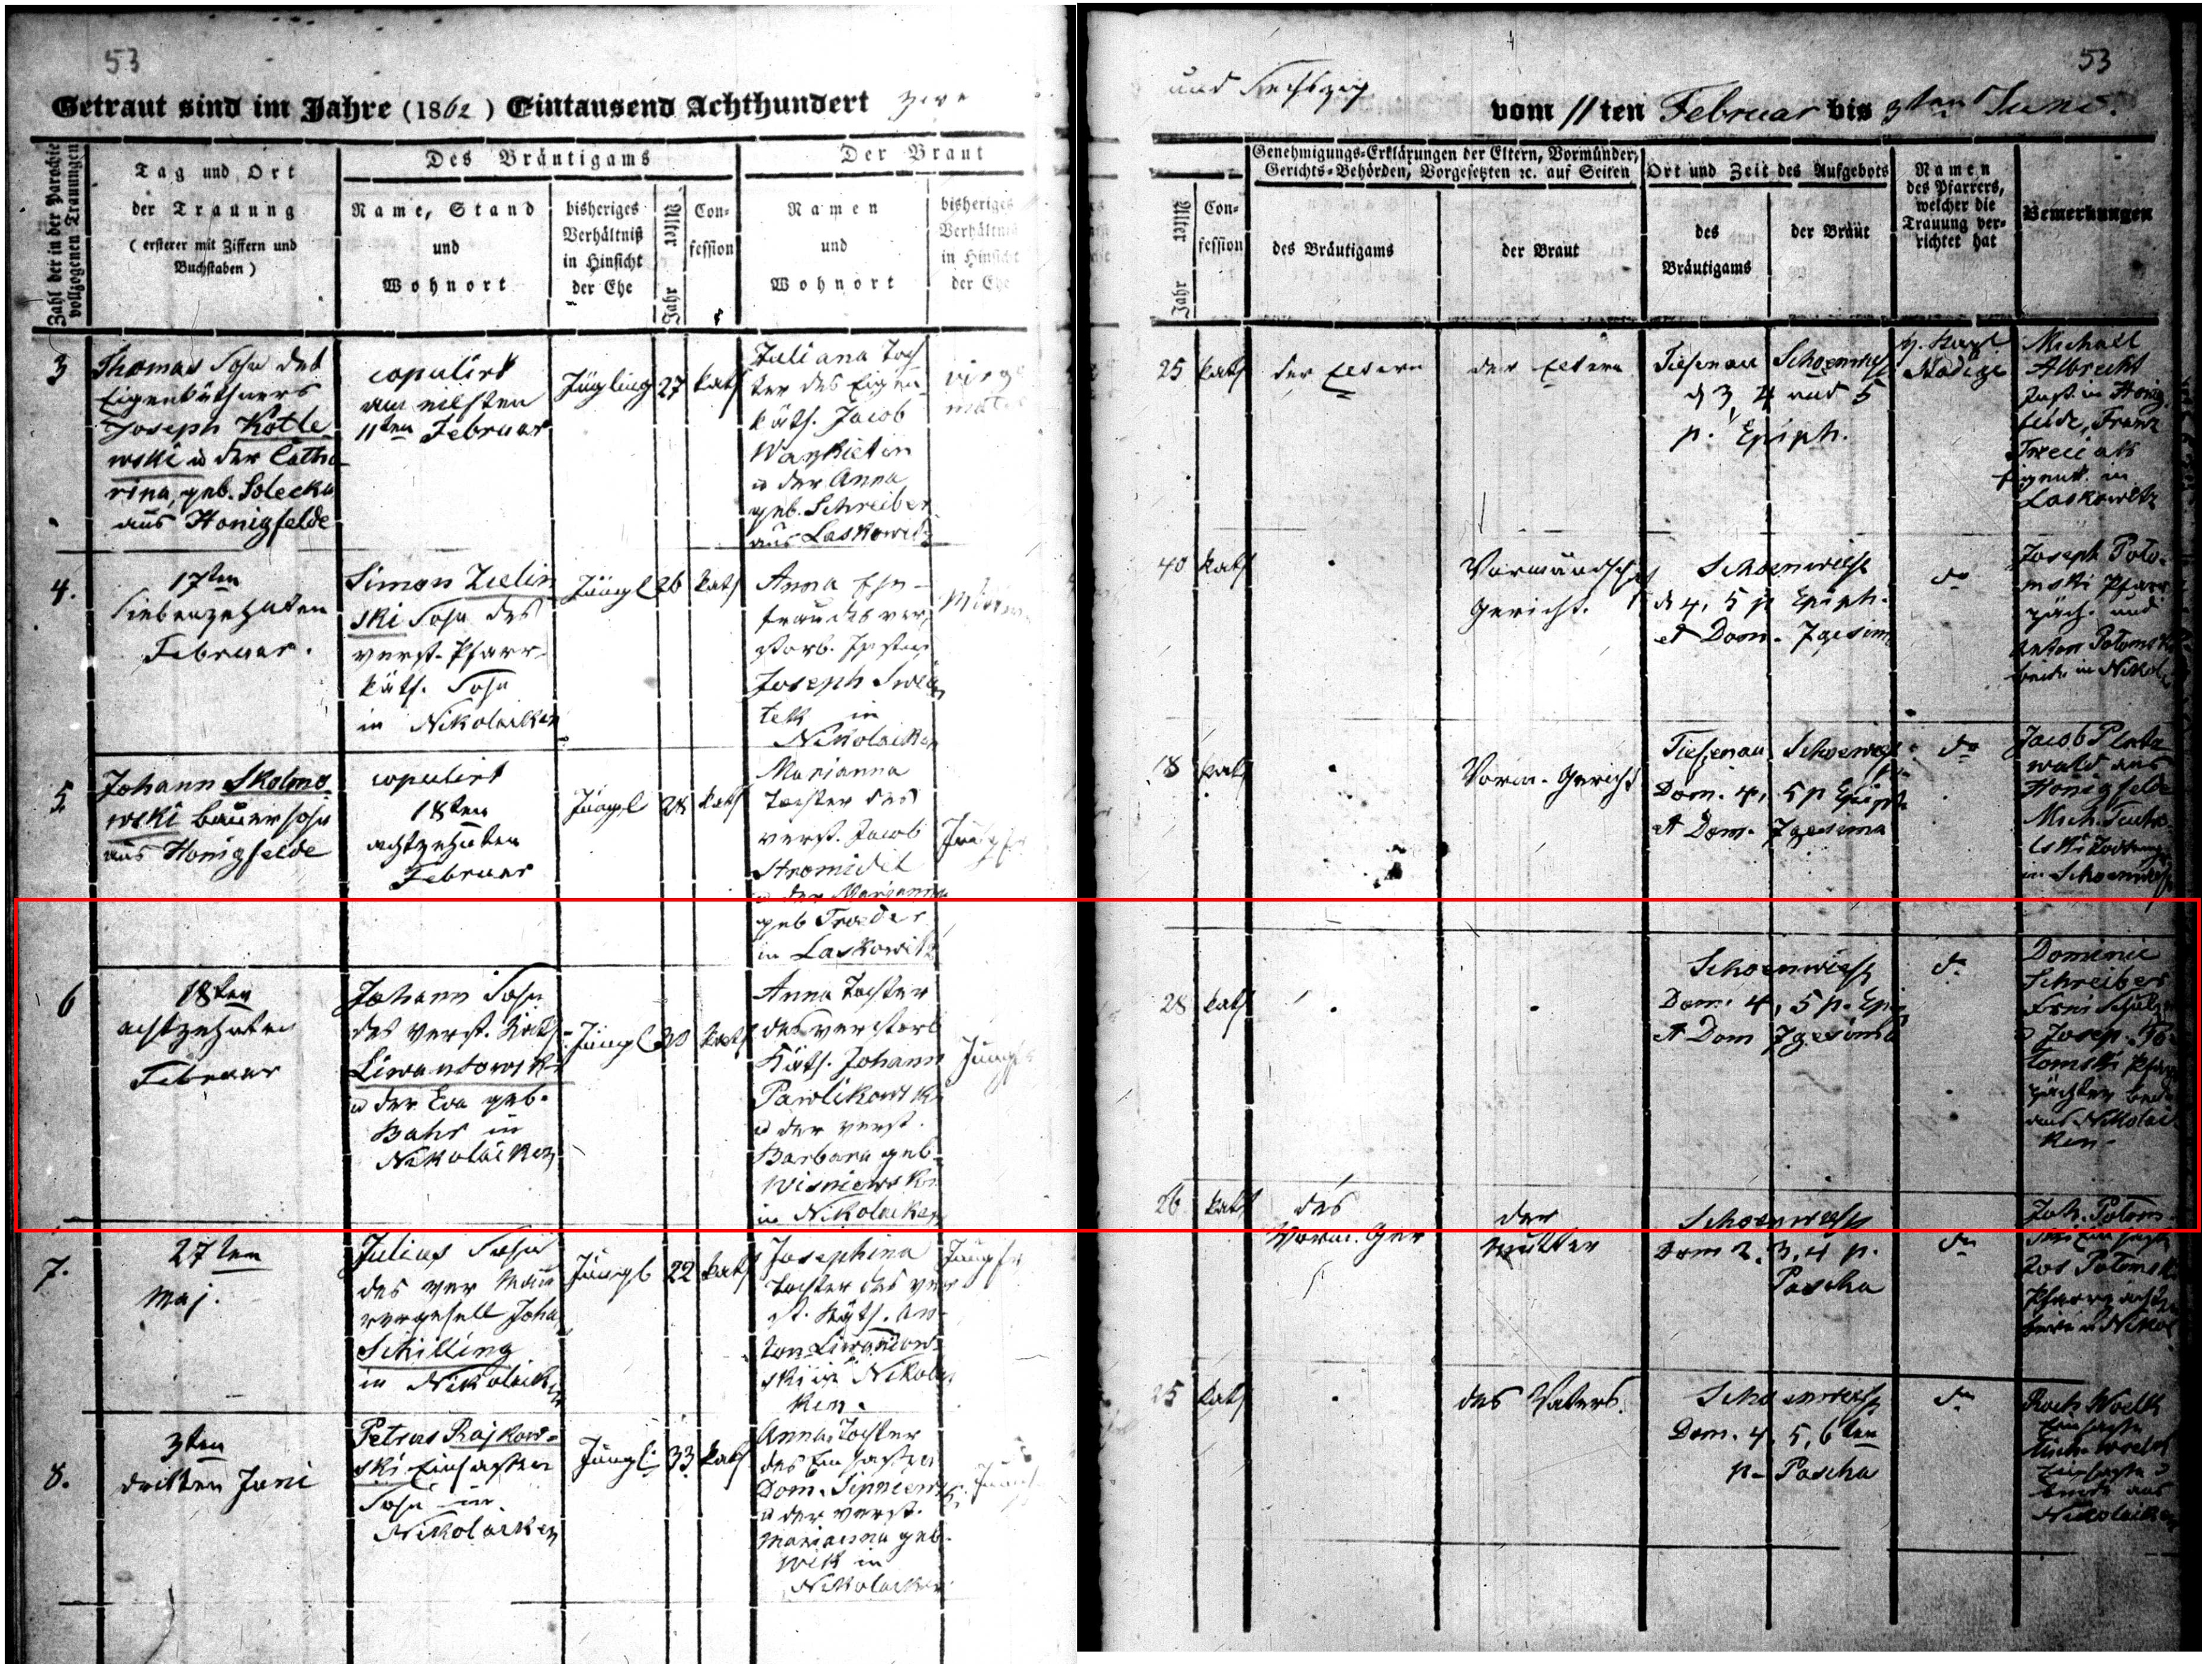 53
Getraut sind im Jahre (1862) Eintausend Achthundert zwei
Zahl der in der Parochie vollzogenen Trauungen
Tag und Ort
der Trauung
(ersterer mit Ziffern und
Buchstaben)
Des Bräutigams
Name, Stand
und
Wohnort
bisheriges
Verhältniß
in Hinsicht
der Ehe
Alter
Jahr
Con-
fession
Der Braut
Namen
und
Wohnort
bisheriges
Verhältniß
in Hinsicht
der Ehe
3
Thomas Sohn des
Eigenkäthners
Joseph Kotle
wski u der Catha
rina, geb. Solecka
aus Honigfelde
copulirt
am eilften
11ten Februar
Jüngling
27
kath
Juliana Toch
ter des Eigen
käth. Jacob
u der Anna
geb. Schreiber
aus Laskowitz
4.
17ten
Siebenzehnten
Februar.
Simon Zielin
ski Sohn des
verst. Pfarr
käth. Sohn
in Nikolaiken
Jüngl
26
kath
Anna Ehe
frau des ver
storb.
Joseph
in
Nikolaiken
5
Johann Skolmo
wski Bauersohn
aus Honigfelde
copulirt
18ten
achtzehnten
Februar
Jüngl
28
kath
Marianna
Tochter des
verst. Jacob
u der Marianna
geb
in Laskowitz
Jungfr
6
18ten
achtzehnten
Februar
Johann Sohn
des verst. Käth
Liwandowski
u der Eva geb.
Bahr in
Nikolaiken
Jüngl
30
kath
Anna Tochter
des verstorb
Käth. Johann
Pawlikowski
u der verst.
Barbara geb.
Wisniewski
in Nikolaiken
Jungfr
7.
27ten
Maj.
Julius Sohn
des ver Mau
rergesell Joha
Schilling
in Nikolaiken
Jüngl
22
kath
Josephina
Tochter des ver
st. Käth. An
ton Liwandow
ski in Nikolai
ken.
Jungfr
8.
3ten
dritten Juni
Petrus Rajkow-
ski Einsassen
Sohn in
Nikolaiken
Jüngl.
33
kath
Anna Tochter
des Einsassen
Dom.
u der verst.
Marianna geb.
in
Nikolaiken
53
und Sechszig
vom 11ten Februar bis 3ten Juni.
Alter
Jahr
Con-
fession
Genehmigungs-Erklärungen der Eltern, Vormünder,
Gerichts-Behörden, Vorgesetzten ec. auf Seiten
des Bräutigams
der Braut
Ort und Zeit des Aufgebots
des
Bräutigams
der Braut
Namen
des Pfarrers,
welcher die
Trauung ver-
richtet hat
Bemerkungen
25
kath
der Eltern
der Eltern
Tiefenau Schoenwiese
d 3, 4 und 5
p. Epiph.
Michael
Albrecht
in Honig
felde, Franz
in
Laskowitz
40
kath
Vormundsch
Gericht.
Schoenwiese
d 4, 5 p Epiph.
et Dom. 7gesim
do
Joseph Poto-
mski Pfarr
päch. und
Anton Potomski
beide in Nikol
18
kath
Vorm. Gericht
Tiefenau Schoenwiese
Dom. 4, 5 p Epiph
et Dom. 7gesima
do
Jacob
wald aus
Honigfelde
Mich.
in Schoenwiese
28
kath
Schoenwiese
Dom. 4, 5 p. Epip
et Dom 7gesima
do
Dominic
Schreiber
u Josep. Po
tomski Pfarr
pächter beide
aus Nikolai
ken.
26
kath
des
Vorm. Ger
der
Mutter
Schoenwiese
Dom 2, 3, 4 p.
Pascha
do
Joh. Potom
ski Einsasse
Jos Potomski
Pfarrpächter
beide in Nikol
25
kath
des Vaters.
Schoenwiese
Dom. 4, 5, 6ten
p. Pascha
do
Einsasse
Mich.
Einsasse
beide aus
Nikolaiken